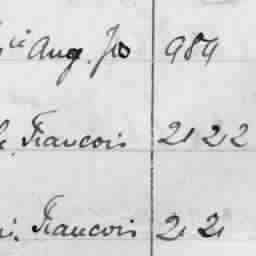 Aug. Jos 989
Francois 2122
Francois 2121